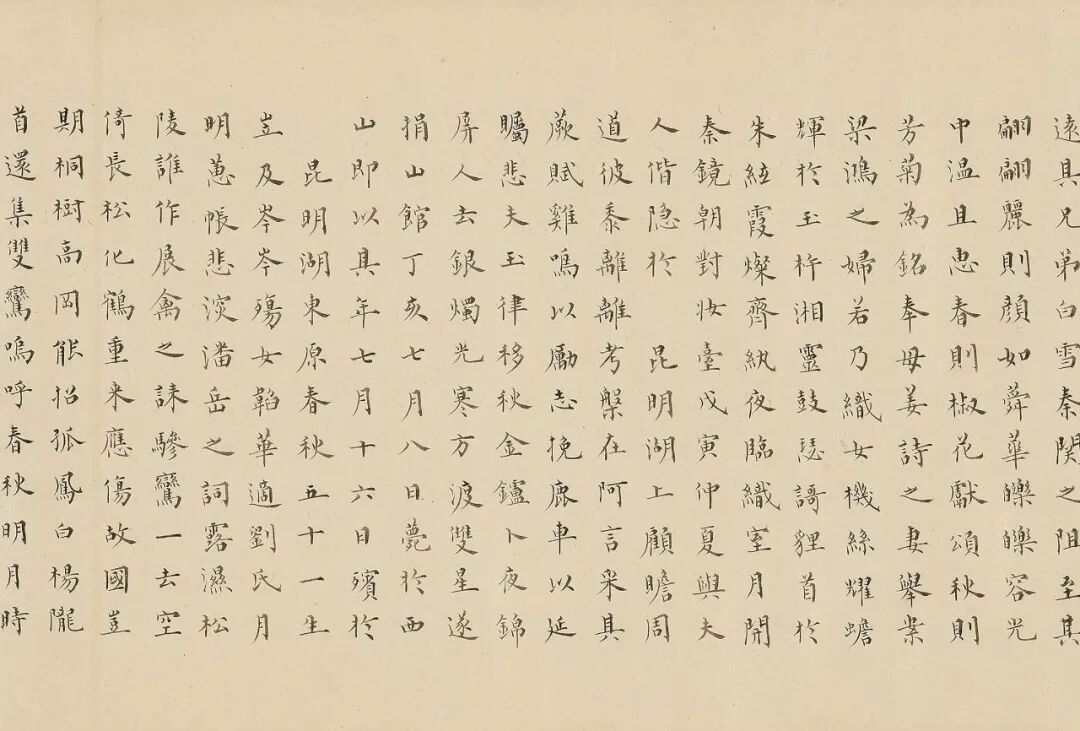 遠其兄弟白雪秦関之阻至其
翩翩麗則顔如蕣華皪皪容光
中温且惠春則椒花獻頌秋則
芳菊為銘奉母姜詩之妻舉案
梁鴻之婦若乃織女機絲耀蟾
輝於玉杵湘靈鼓瑟謌貍首於
朱絃霞燦齊紈夜臨織室月開
秦鏡朝對妝臺戊寅仲夏與夫
人偕隐於 昆明湖上顧瞻周
道彼黍離離考槃在阿言采其
蕨賦雞鳴以勵志挽鹿車以延
矚悲夫玉律移秋金鑪卜夜錦
屏人去銀燭光寒方渡雙星遂
捐山館丁亥七月八日薨於西
山即以其年七月十六日殯於
昆明湖東原春秋五十一生
岦及岑岑殤女韜華適劉氏月
明蕙帳悲深潘岳之詞露濕松
陵誰作展禽之誄驂鸞一去空
倚長松化鶴重来應傷故國豈
期桐樹高岡能招孤鳳白楊隴
首還集雙鸞嗚呼春秋明月時